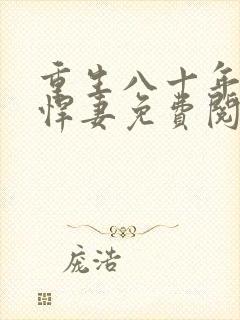 重生八十年
悍妻免费阅
庞浩